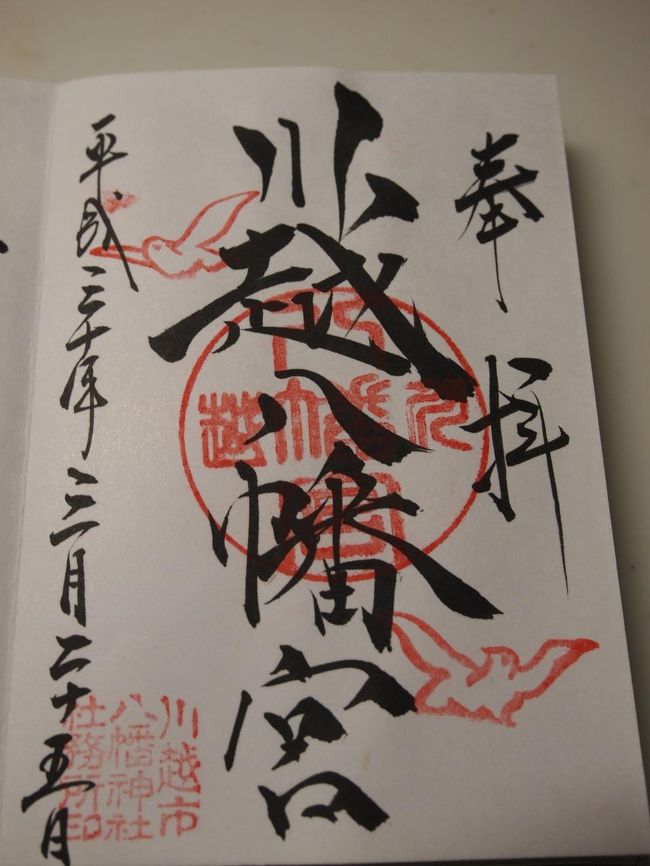 奉拝
川越八幡宮
平成三十年三月二十五日
川越市
八幡神社
社務所印